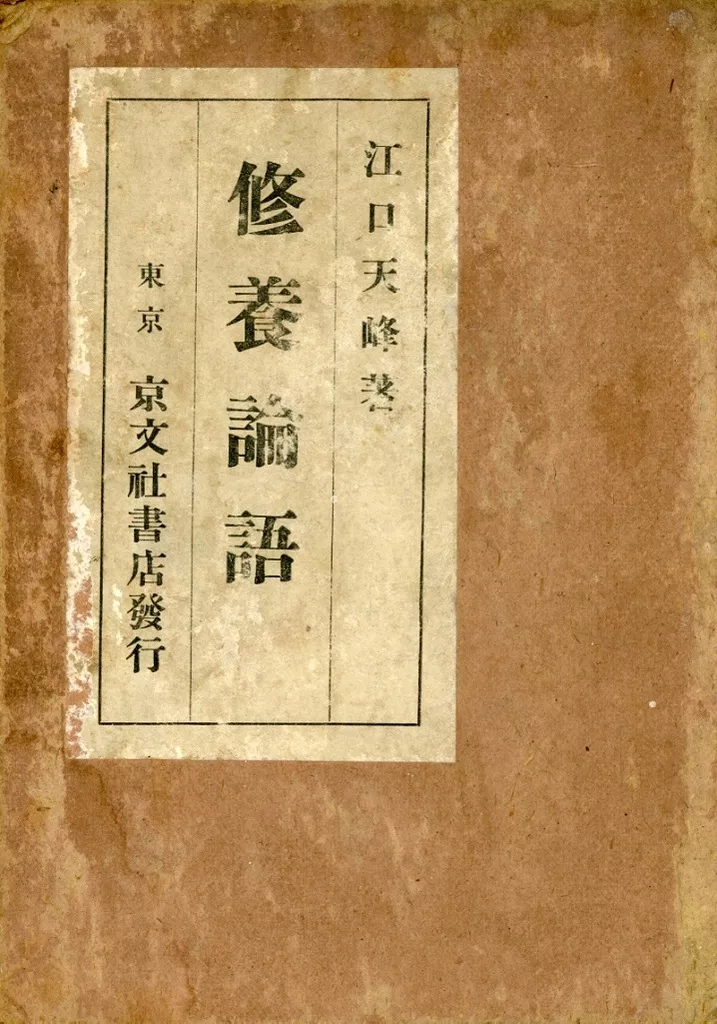 江口天峰著
修養論語
東京 京文社書店發行